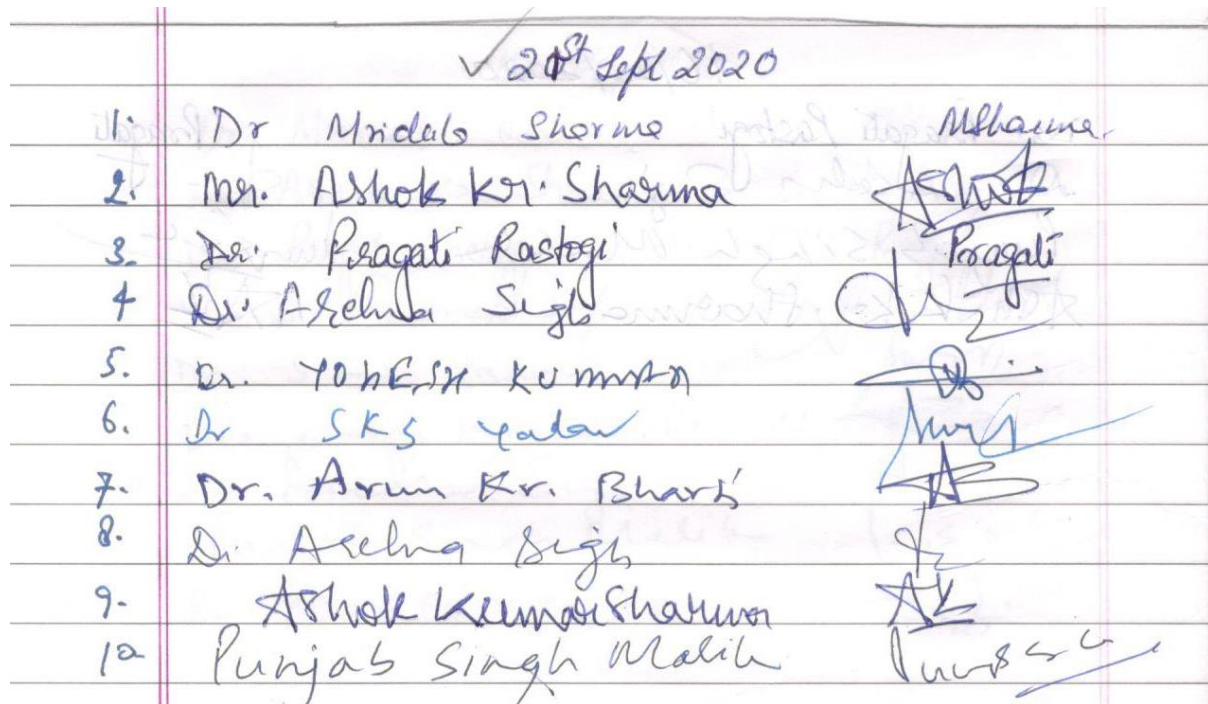 ✓ 21st Sept 2020
1. Dr Mridula Sharma MSharma.
2. Mr. Ashok Kr. Sharma Ashok
3. Dr. Pragati Rastogi Pragati
4 Dr. Archna Sigh
5. Dr. YOGESH KUMAR
6. Dr SKS Yadav
7. Dr. Arun Kr. Bharti
8. Dr. Archna Sigh
9. Ashok Kumar Sharma AK
10 Punjab Singh Malik